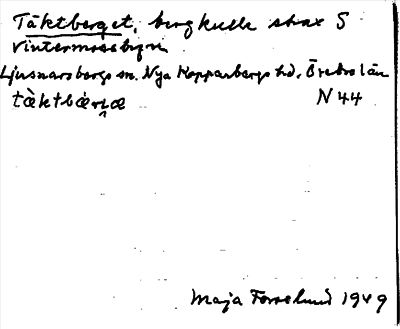 Täktberget, bergkulle strax S
Vintermossbyn
Ljusnarsbergs sn. Nya Kopparbergs hd. Örebro län
tàktbær̨æ N 44
Maja Forsslund 1949